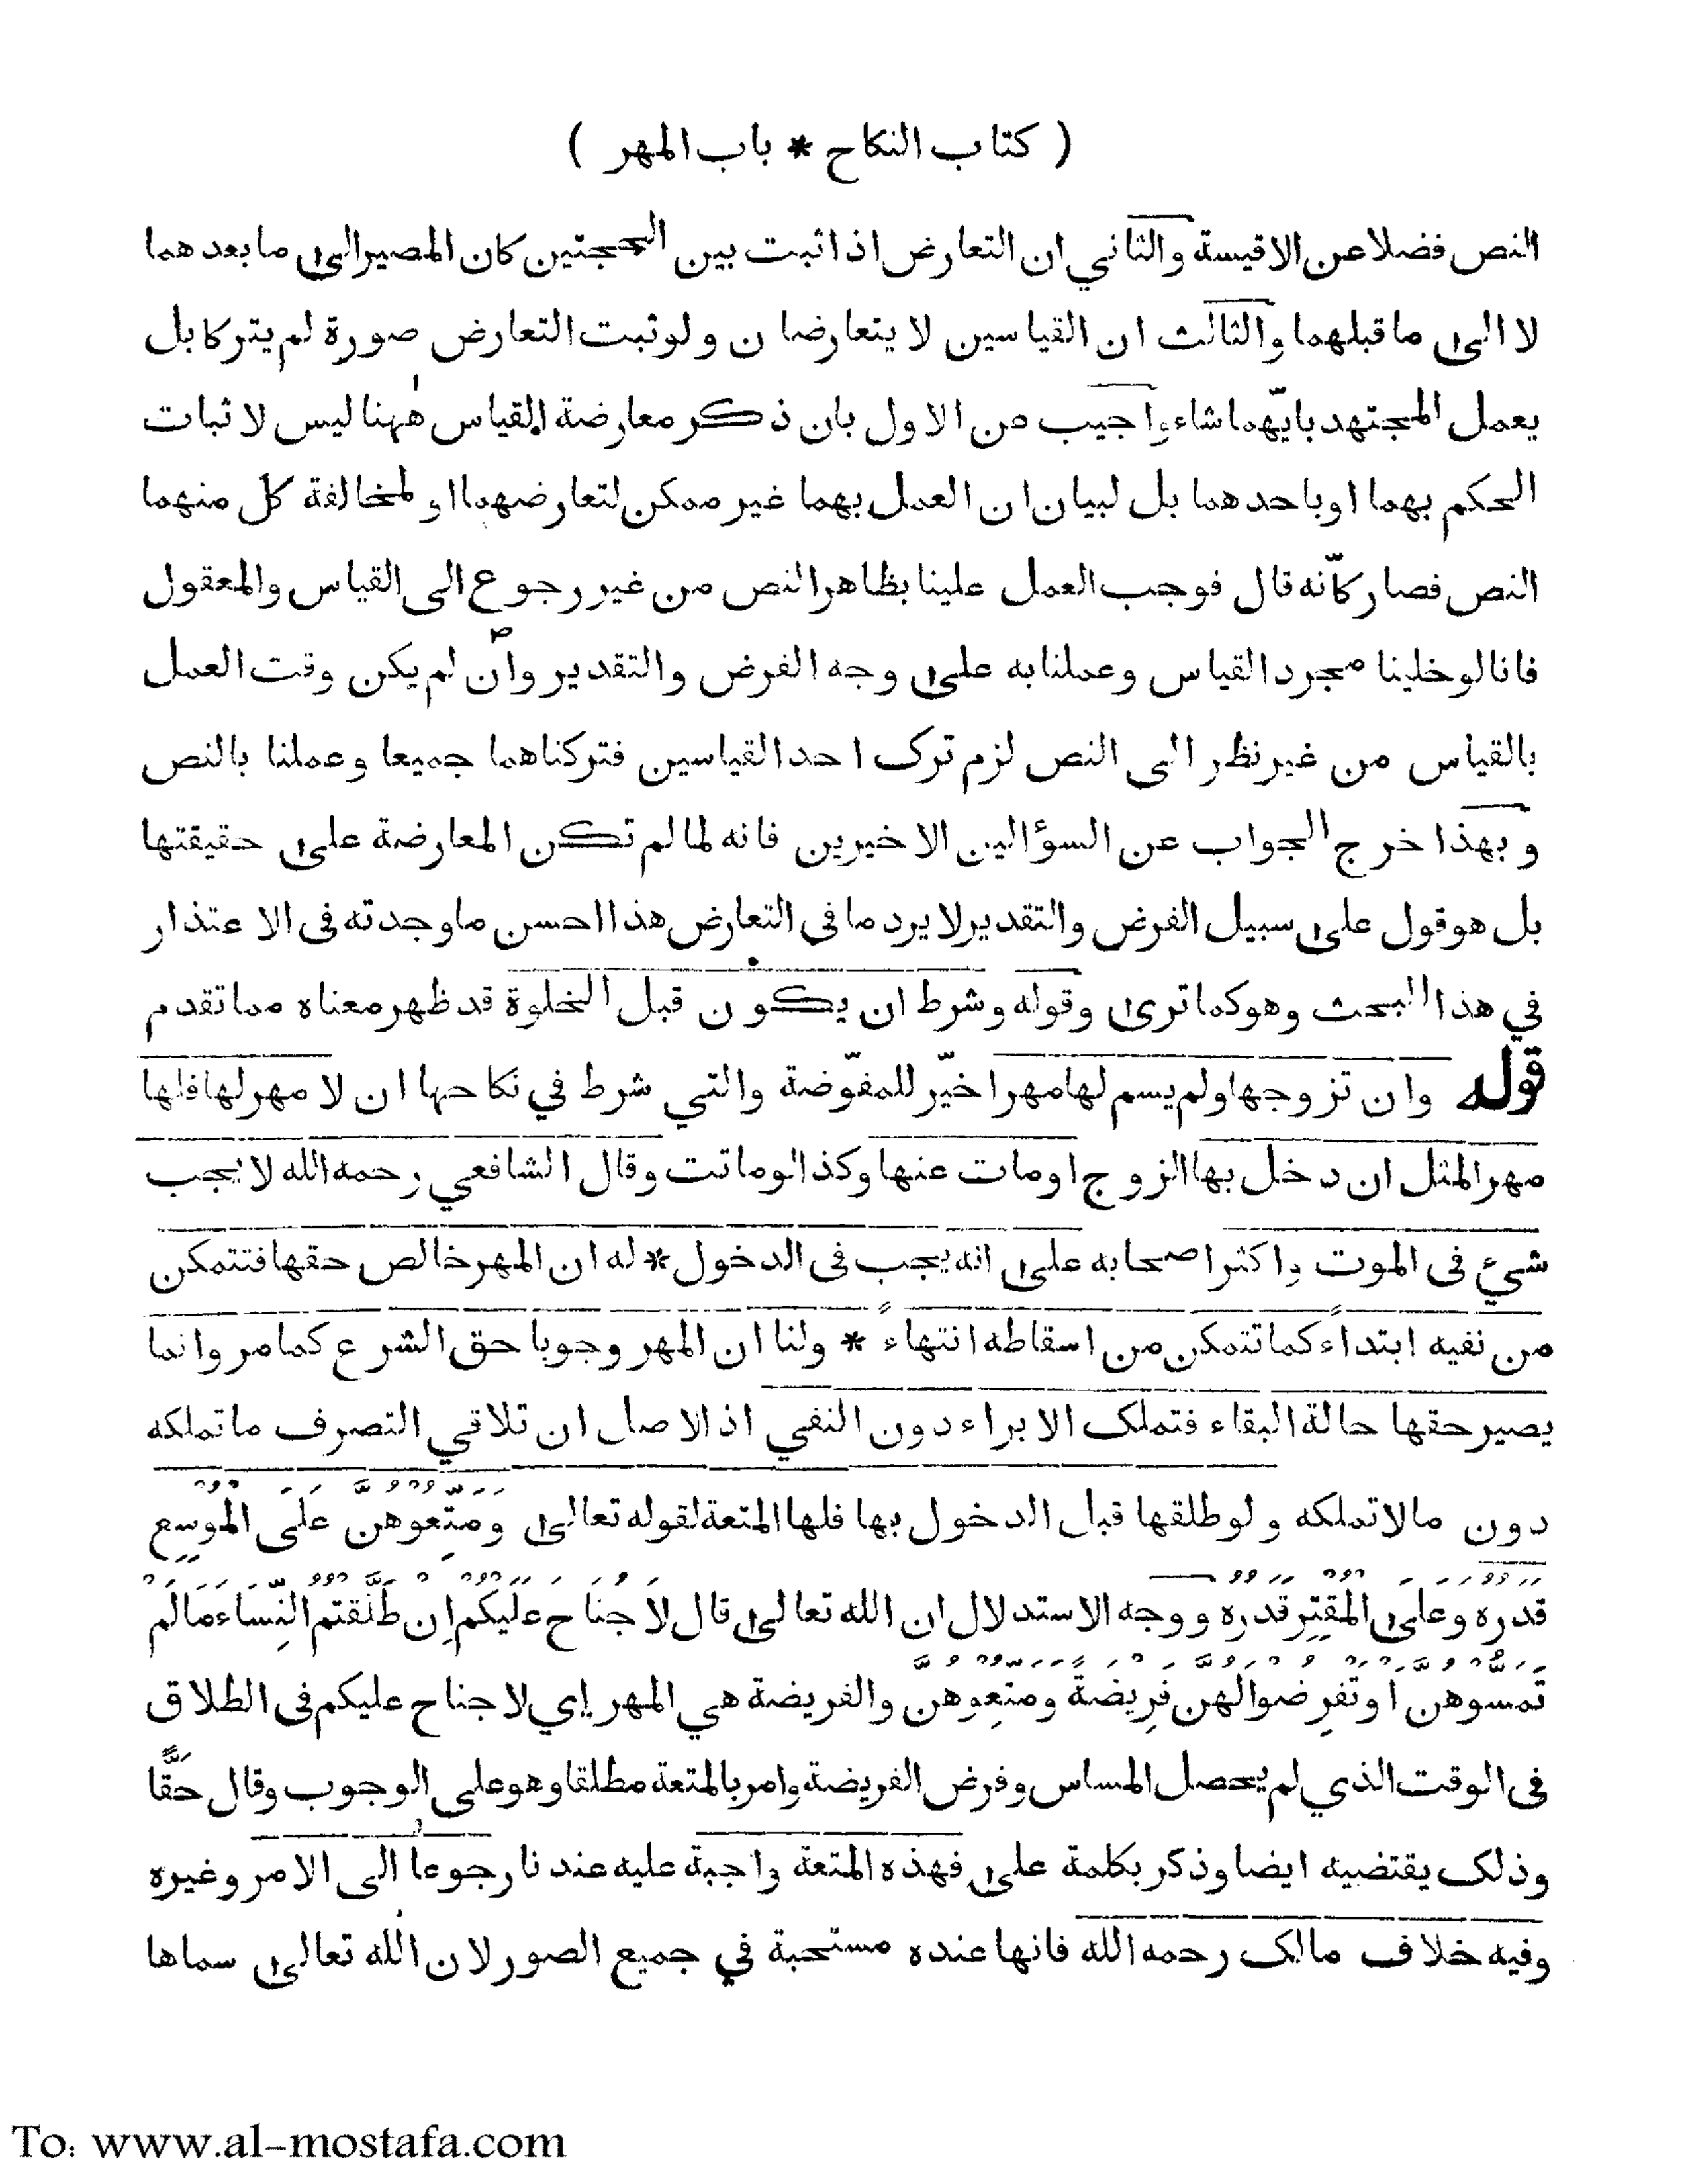 ( كتاب النكاح * باب المهر )
النص فضلا عن الاقيسة والثاني ان التعارض اذا ثبت بين الحجتين كان المصير الى ما بعدهما
لا الى ما قبلهما والثالث ان القياسين لا يتعارضان ولو ثبت التعارض صورة لم يتركا بل
يعمل المجتهد بايّهما شاء واجيب من الاول بان ذكر معارضة القياس هٰهنا ليس لاثبات
الحكم بهما او باحدهما بل لبيان ان العمل بهما غير ممكن لتعارضهما او لمخالفة كل منهما
النص فصار كانّه قال فوجب العمل علينا بظاهر النص من غير رجوع الى القياس والمعقول
فانا لو خلينا مجرد القياس وعملنا به على وجه الفرض والتقدير وان لم يكن وقت العمل
بالقياس من غير نظر الى النص لزم ترك احد القياسين فتركناهما جميعا وعملنا بالنص
وبهذا خرج الجواب عن السؤالين الاخيرين فانه لما لم تكن المعارضة على حقيقتها
بل هو قول على سبيل الفرض والتقدير لا يرد ما في التعارض هذا احسن ما وجدته في الاعتذار
في هذا البحث وهو كما ترى وقوله وشرط ان يكون قبل الخلوة قد ظهر معناه مما تقدم
قوله وان تزوجها ولم يسم لها مهرا خيّر للمفوّضة والتي شرط في نكاحها ان لا مهر لها فلها
مهر المثل ان دخل بها الزوج او مات عنها وكذا لو ماتت وقال الشافعي رحمه الله لا يجب
شيء في الموت واكثر اصحابه على انه يجب في الدخول * له ان المهر خالص حقها فتتمكن
من نفيه ابتداءً كما تتمكن من اسقاطه انتهاءً * ولنا ان المهر وجوبا حق الشرع كما مر وانما
يصير حقها حالة البقاء فتملك الابراء دون النفي اذ الاصل ان تلاقي التصرف ما تملكه
دون ما لا تملكه ولو طلقها قبل الدخول بها فلها المتعة لقوله تعالى وَمَتِّعُوْهُنَّ عَلَى الْمُوْسِعِ
قَدَرُهُ وَعَلَى الْمُقْتِرِ قَدَرُهُ ووجه الاستدلال ان الله تعالى قال لَا جُنَاحَ عَلَيْكُمْ اِنْ طَلَّقْتُمُ النِّسَاءَ مَا لَمْ
تَمَسُّوْهُنَّ اَوْ تَفْرِضُوْا لَهُنَّ فَرِيْضَةً وَمَتِّعُوْهُنَّ والفريضة هي المهر اي لا جناح عليكم في الطلاق
في الوقت الذي لم يحصل المساس وفرض الفريضة وامر بالمتعة مطلقا وهو على الوجوب وقال حَقًّا
وذلك يقتضيه ايضا وذكر بكلمة على فهذه المتعة واجبة عليه عندنا رجوعا الى الامر وغيره
وفيه خلاف مالك رحمه الله فانها عنده مستحبة في جميع الصور لان الله تعالى سماها
To: www.al-mostafa.com